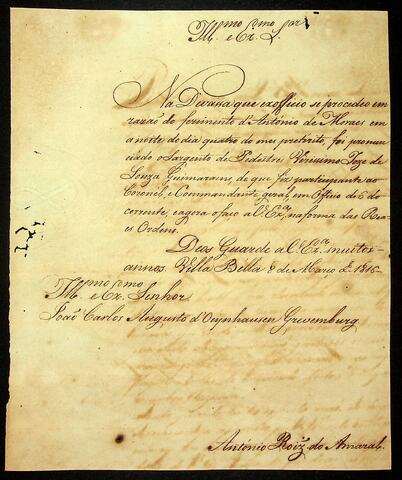 Ill.mo e Ex.mo S.or
Na Divassa que exofficio se procedeo em
razaõ do ferimento d'António de Moraes em
a noite do dia quatro do mes preterito, foi pronun
ciado o Sargento de Pedestres Verissimo Joze de
Souza Guimaraens, de que fiz participante ao
Coronel, e Commandante geral, em Officio de 6 do
corrente, e agora o faço a V. Ex.ª, na forma das Rea
es Ordens.
Deos Guarde a V. Ex.ª muitos
annos. Villa Bella 8 de Março d. 1816
Ill.mo e Ex.mo Senhor
João Carlos Augusto d'Oeynhausen Grevemburg.
António Roiz do Amaral.